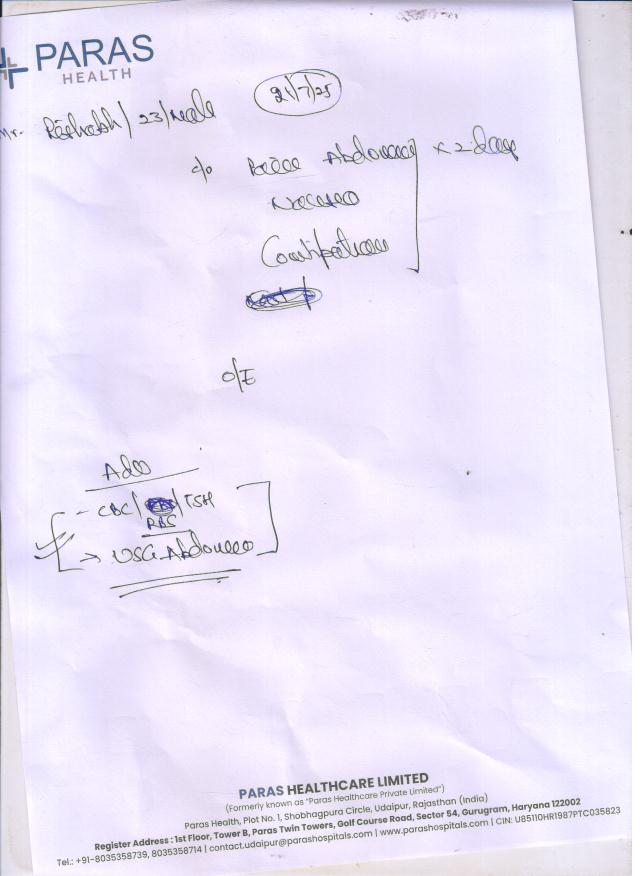 PARAS
HEALTH
21/7/25
Mr. Rishabh / 23 / Male
c/o Pain Abdomen x 2 days
Nausea
Constipation
O/E
Adv
- CBC / / TSH
RBS
→ USG Abdomen
PARAS HEALTHCARE LIMITED
(Formerly known as "Paras Healthcare Private Limited")
Paras Health, Plot No. 1, Shobhagpura Circle, Udaipur, Rajasthan (India)
Register Address : 1st Floor, Tower B, Paras Twin Towers, Golf Course Road, Sector 54, Gurugram, Haryana 122002
Tel.: +91-8035358739, 8035358714 | contact.udaipur@parashospitals.com | www.parashospitals.com | CIN: U85110HR1987PTC035823